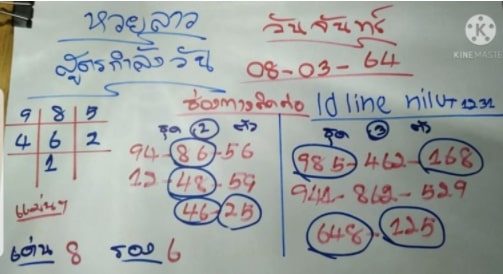 หวยลาว วันจันทร์
สูตรกำลังวัน 08-03-64
KINEMASTER
ช่องทางติดต่อ Id line
9 8 5
4 6 2
1
ชุด 2 ตัว
94-86-56
12-48-59
46-25
ชุด 3 ตัว
985-462-168
941-862-529
648-125
แม่นๆ
เด่น 8 รอง 6